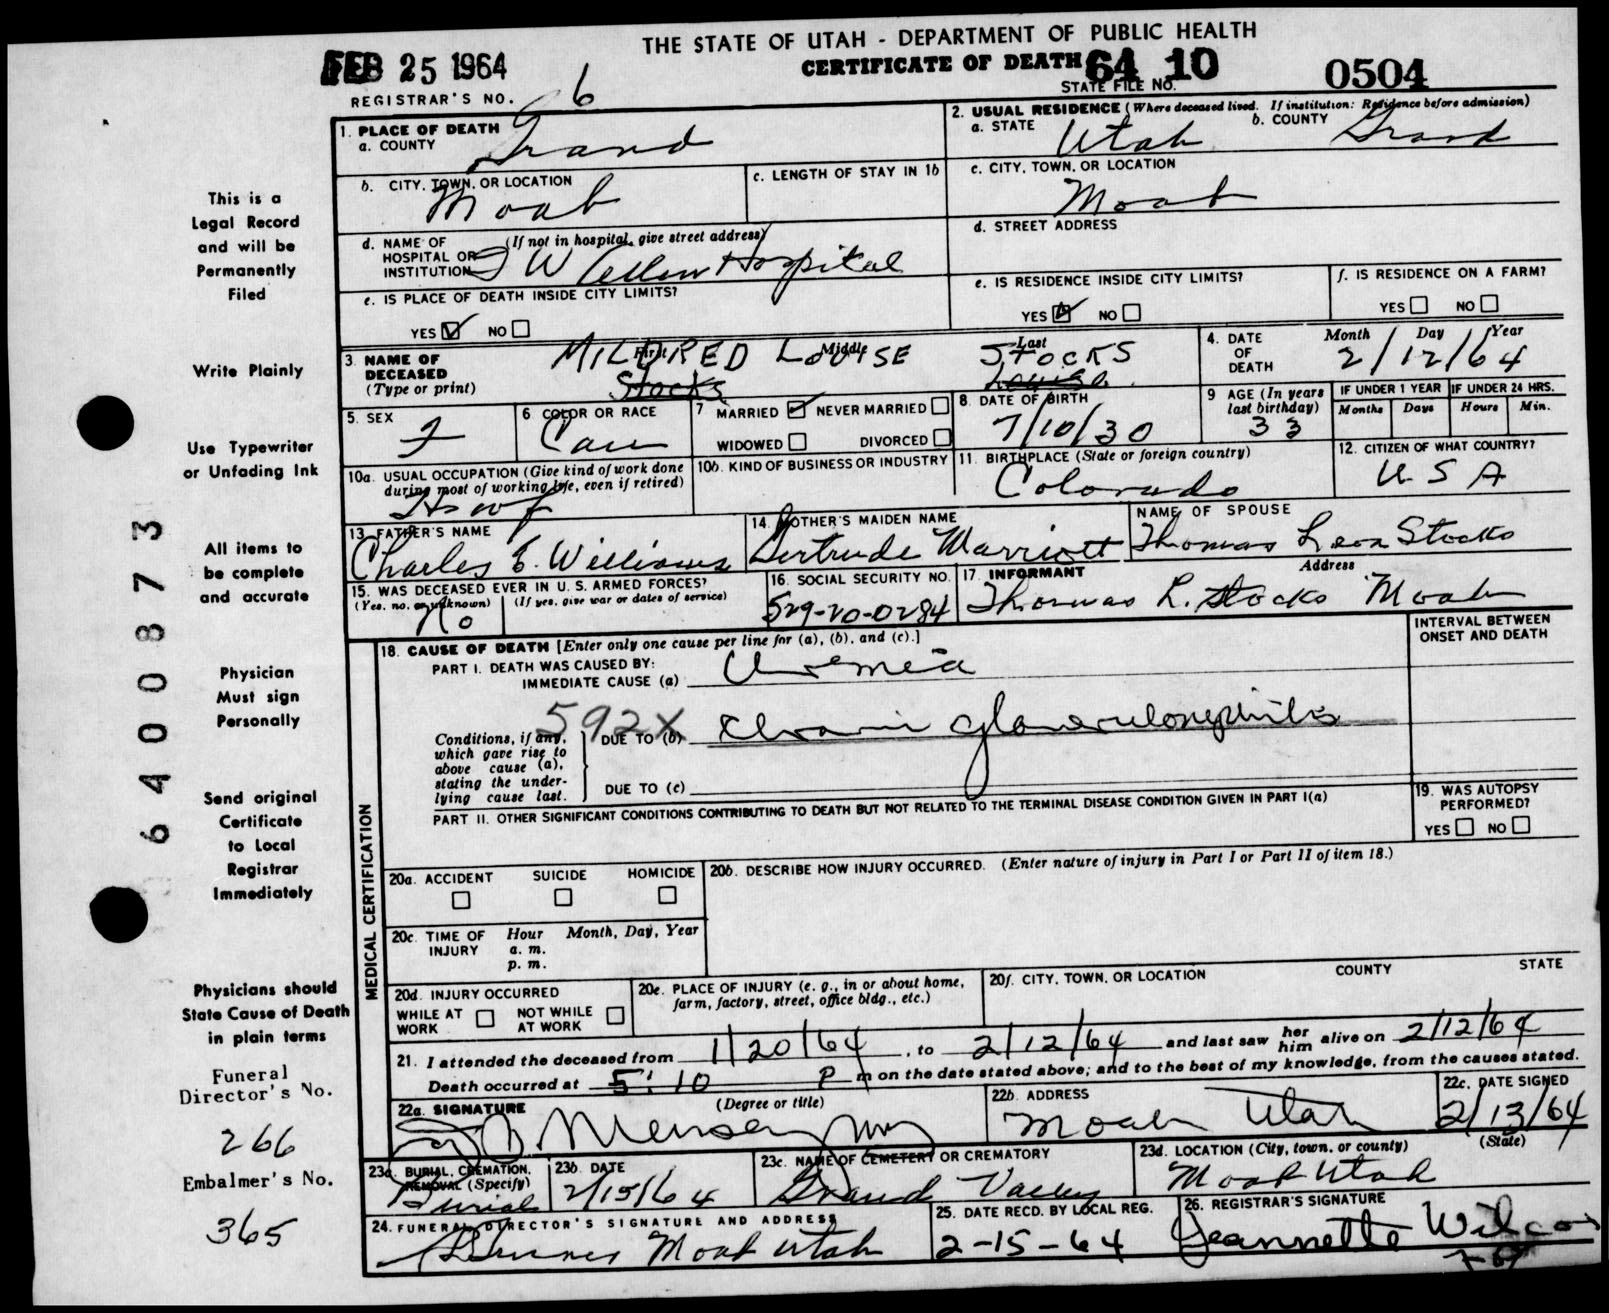 THE STATE OF UTAH - DEPARTMENT OF PUBLIC HEALTH
CERTIFICATE OF DEATH
FEB 25 1964
64 10 0504
STATE FILE NO.
REGISTRAR'S NO. 6
1. PLACE OF DEATH
a. COUNTY Grand
2. USUAL RESIDENCE (Where deceased lived. If institution: Residence before admission)
a. STATE Utah b. COUNTY Grand
b. CITY, TOWN, OR LOCATION Moab
c. LENGTH OF STAY IN 1b
c. CITY, TOWN, OR LOCATION Moab
d. NAME OF HOSPITAL OR INSTITUTION (If not in hospital, give street address) I W Allen Hospital
d. STREET ADDRESS
e. IS PLACE OF DEATH INSIDE CITY LIMITS?
YES NO
e. IS RESIDENCE INSIDE CITY LIMITS?
YES NO
f. IS RESIDENCE ON A FARM?
YES NO
3. NAME OF DECEASED (Type or print)
First Middle Last
MILDRED LOUISE STOCKS
Stocks Louise
4. DATE OF DEATH Month Day Year
2/12/64
5. SEX F
6 COLOR OR RACE Cau
7 MARRIED NEVER MARRIED
WIDOWED DIVORCED
8. DATE OF BIRTH 7/10/30
9 AGE (In years last birthday) 33
IF UNDER 1 YEAR Months Days
IF UNDER 24 HRS. Hours Min.
10a. USUAL OCCUPATION (Give kind of work done during most of working life, even if retired) Hswf
10b. KIND OF BUSINESS OR INDUSTRY
11. BIRTHPLACE (State or foreign country) Colorado
12. CITIZEN OF WHAT COUNTRY? USA
13. FATHER'S NAME Charles E. Williams
14. MOTHER'S MAIDEN NAME Gertrude Marriott
NAME OF SPOUSE Thomas Leon Stocks
15. WAS DECEASED EVER IN U. S. ARMED FORCES?
(Yes, no, or unknown) (If yes, give war or dates of service)
No
16. SOCIAL SECURITY NO. 529-20-0284
17. INFORMANT Address
Thomas L. Stocks Moab
18. CAUSE OF DEATH [Enter only one cause per line for (a), (b), and (c).]
INTERVAL BETWEEN ONSET AND DEATH
PART I. DEATH WAS CAUSED BY:
IMMEDIATE CAUSE (a) Uremia
592X
Conditions, if any, which gave rise to above cause (a), stating the underlying cause last.
DUE TO (b) Chronic glomerulonephritis
DUE TO (c)
PART II. OTHER SIGNIFICANT CONDITIONS CONTRIBUTING TO DEATH BUT NOT RELATED TO THE TERMINAL DISEASE CONDITION GIVEN IN PART I(a)
19. WAS AUTOPSY PERFORMED?
YES NO
MEDICAL CERTIFICATION
20a. ACCIDENT SUICIDE HOMICIDE
20b. DESCRIBE HOW INJURY OCCURRED. (Enter nature of injury in Part I or Part II of item 18.)
20c. TIME OF INJURY Hour Month, Day, Year
a. m.
p. m.
20d. INJURY OCCURRED
WHILE AT WORK NOT WHILE AT WORK
20e. PLACE OF INJURY (e. g., in or about home, farm, factory, street, office bldg., etc.)
20f. CITY, TOWN, OR LOCATION COUNTY STATE
21. I attended the deceased from 1/20/64, to 2/12/64 and last saw her him alive on 2/12/64
Death occurred at 5:10 P m on the date stated above; and to the best of my knowledge, from the causes stated.
22a. SIGNATURE (Degree or title)
22b. ADDRESS Moab Utah
22c. DATE SIGNED 2/13/64
23a. BURIAL, CREMATION, REMOVAL (Specify) Burial
23b. DATE 2/15/64
23c. NAME OF CEMETERY OR CREMATORY Grand Valley
23d. LOCATION (City, town, or county) (State)
Moab Utah
24. FUNERAL DIRECTOR'S SIGNATURE AND ADDRESS
Moab Utah
25. DATE RECD. BY LOCAL REG. 2-15-64
26. REGISTRAR'S SIGNATURE Jeannette Wilcox
This is a
Legal Record
and will be
Permanently
Filed
Write Plainly
Use Typewriter
or Unfading Ink
All items to
be complete
and accurate
Physician
Must sign
Personally
Send original
Certificate
to Local
Registrar
Immediately
Physicians should
State Cause of Death
in plain terms
Funeral
Director's No.
266
Embalmer's No.
365
64000873